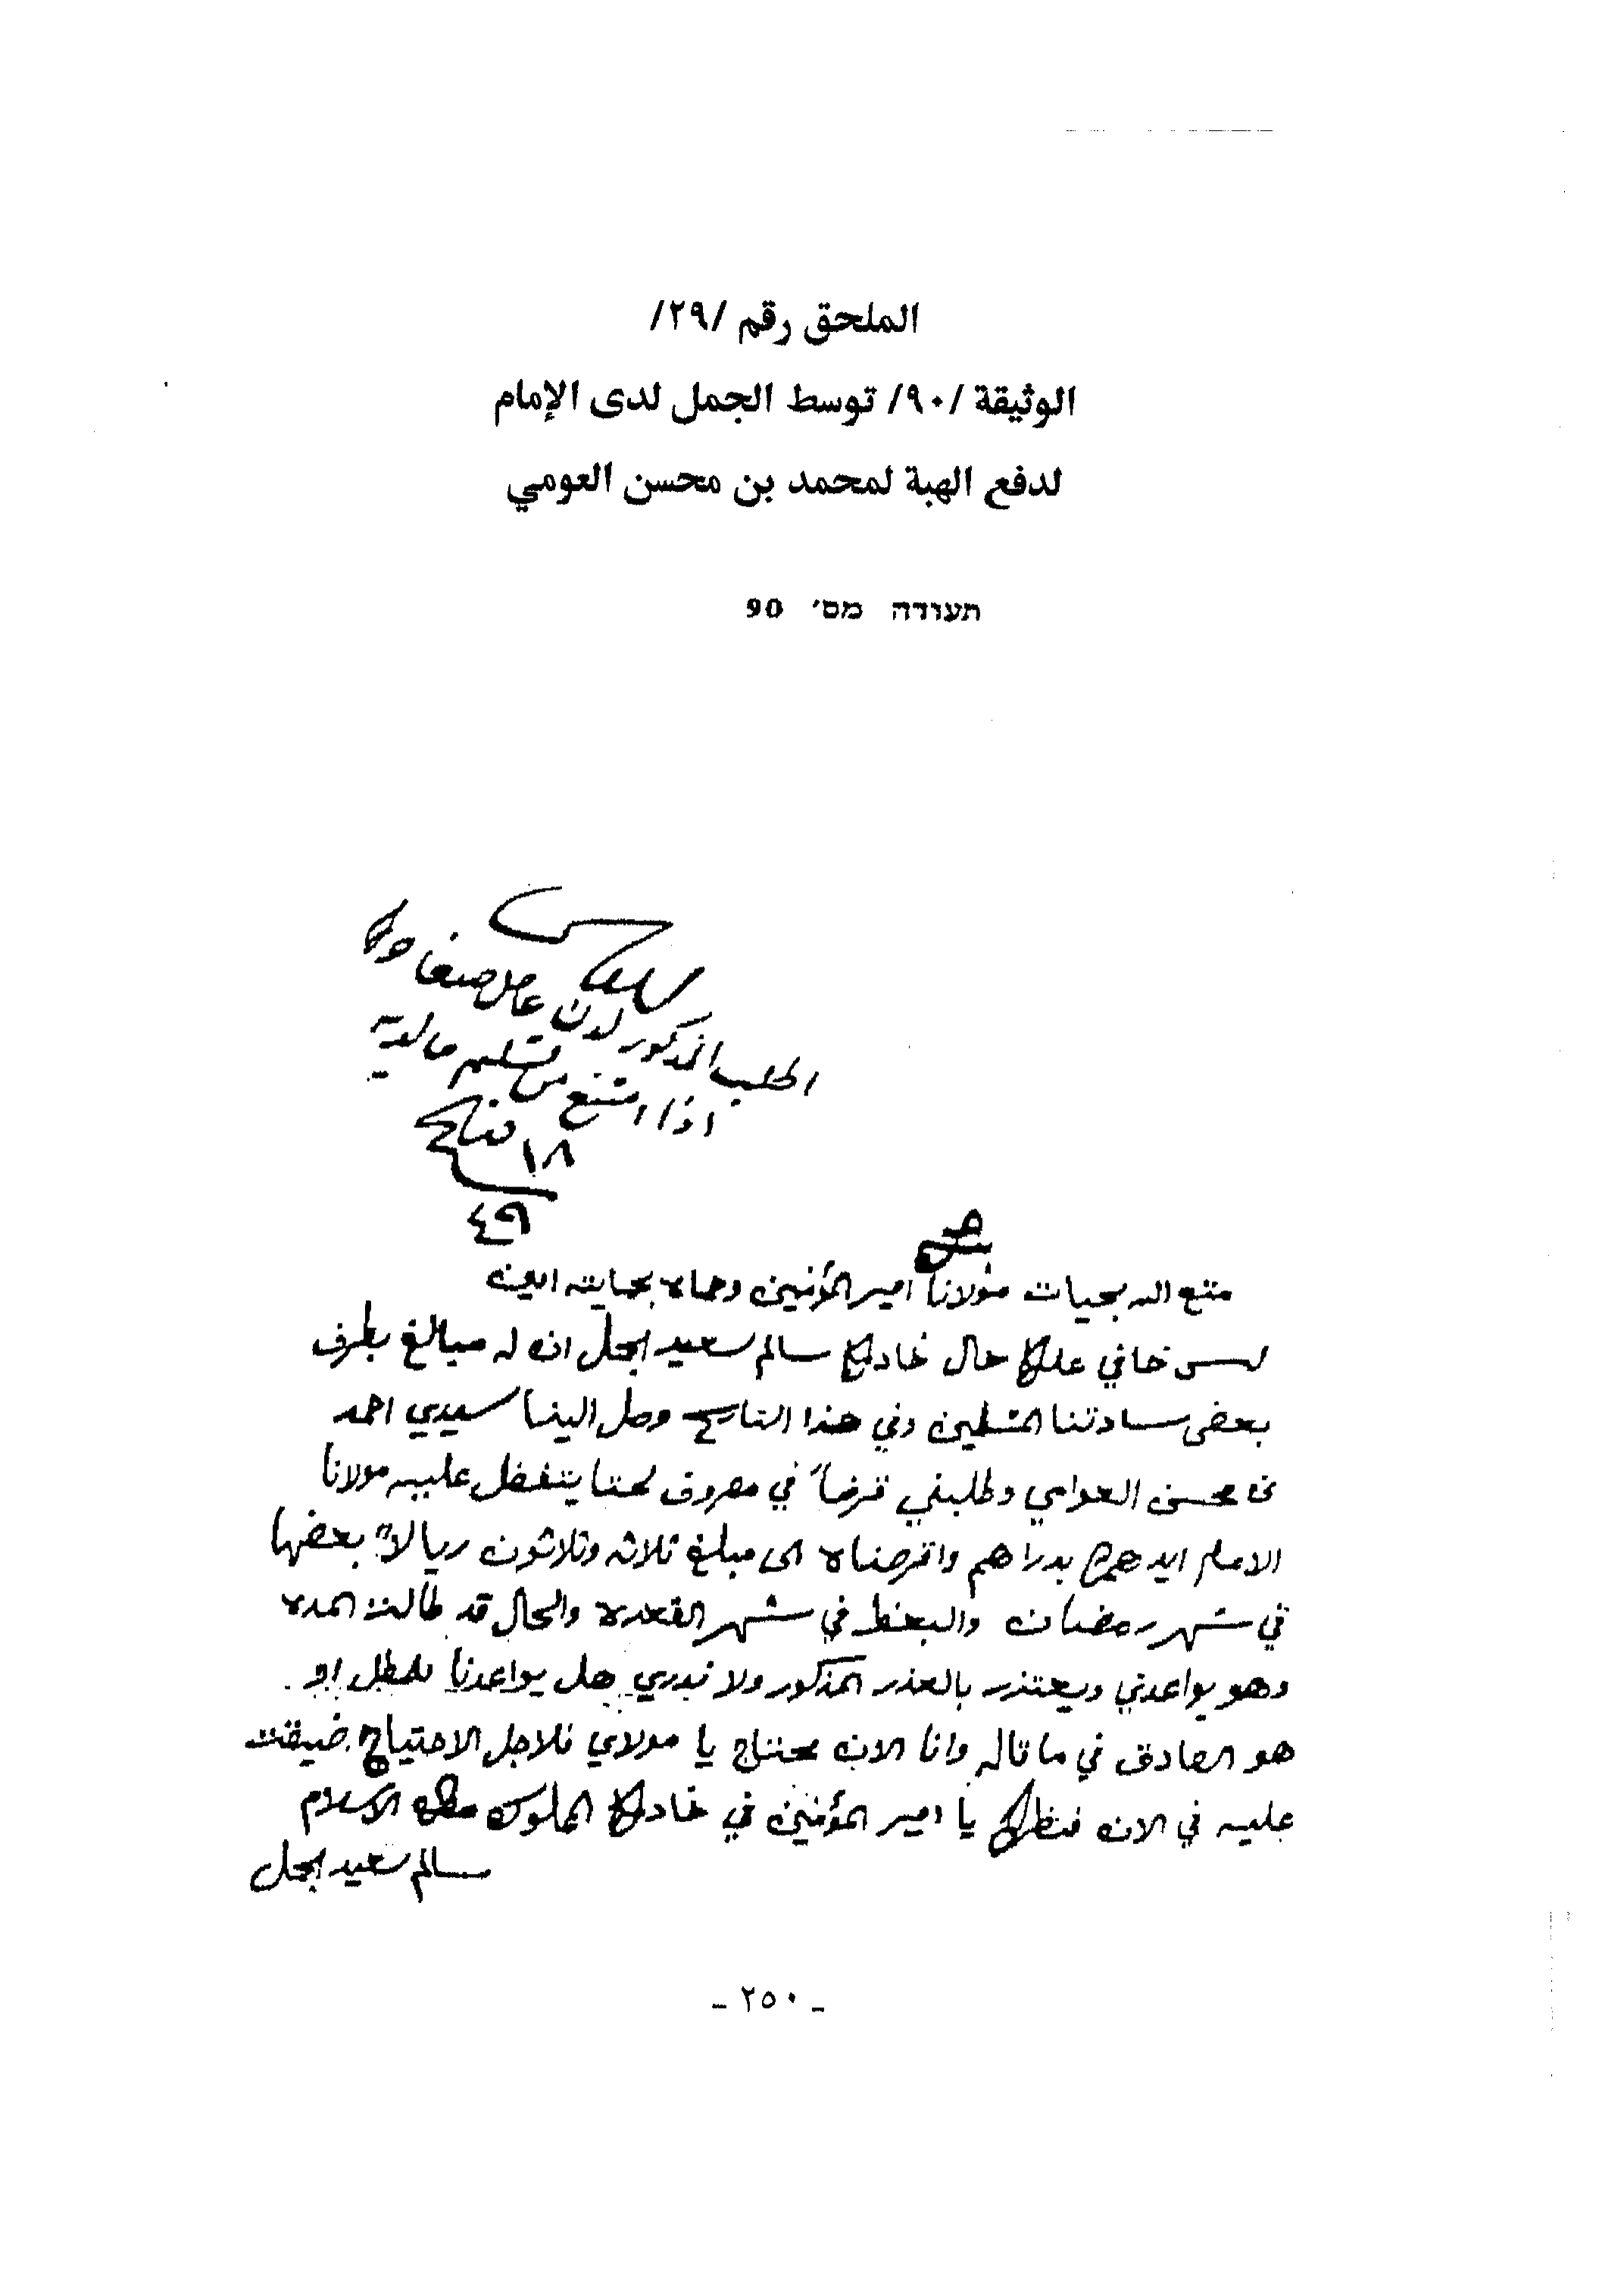 الملحق رقم /٢٩/
الوثيقة /٩٠/ توسط الجمل لدى الإمام
لدفع الهبة لمحمد بن محسن العومي
תעודה מס׳ 90
الطلب المذكور لدن عامل صنعاء
اذا امتنع من تسليم ما لديه
١٨
٤٩
متع الله بحيات مولانا امير المؤمنين وحماه بحمايته امين
ليس خافي عليكم حال خادمكم سالم سعيد الجمل انه له مبالغ بطرف
بعض سادتنا المسلمين وفي هذا التاريخ وصل الينا سيدي احمد
بن محسن العوامي وطلبني قرضاً في مصروف لحتا يتفضل عليه مولانا
الامام ايدهم بدراهم واقرضناه الى مبلغ ثلاثه وثلاثون ريالاً بعضها
في شهر رمضان والبعض في شهر القعده والحال قد طالت المده
وهو يواعدني ويعتذر بالعذر المذكور ولا ندري هل يواعدنا للمطل او
هو الصادق في ما قاله وانا الان محتاج يا مولاي فلاجل الاحتياج ضيقت
عليه في الان فنظركم يا امير المؤمنين في خادمكم المملوك والسلام
سالم سعيد الجمل
- ٢٥٠ -